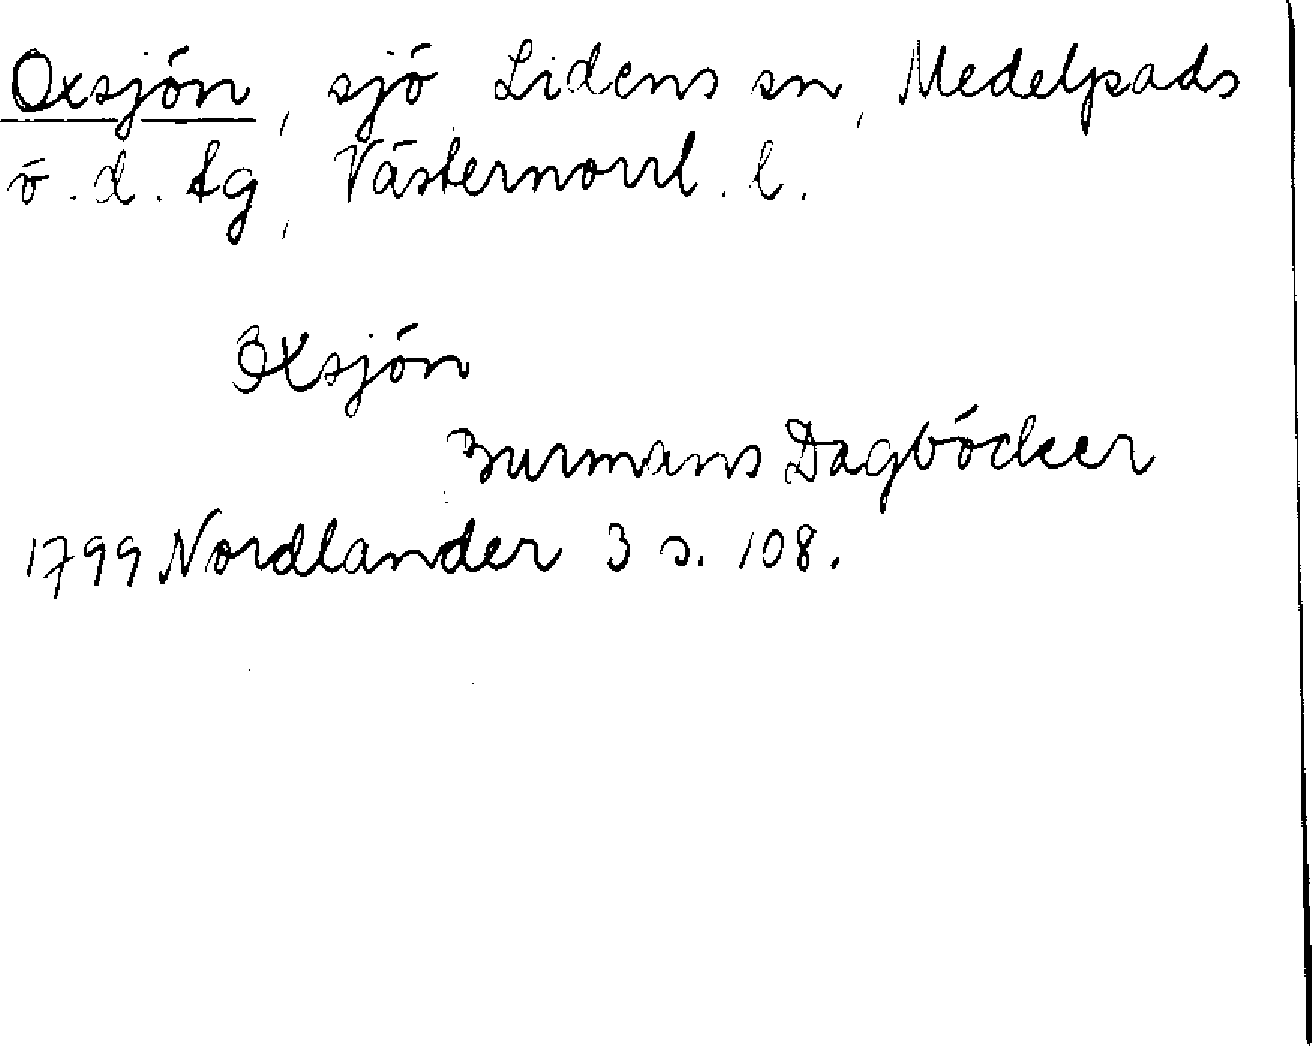 Oxsjön, sjö Lidens sn, Medelpads
ö. d. tg, Västernorrl. l.
Oxsjön
Burmans Dagböcker
1799 Nordlander 3 s. 108.